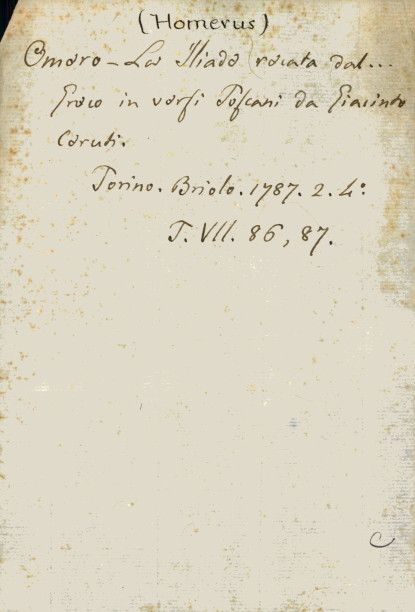 (Homerus)
Omero - La Iliade recata dal...
Greco in versi Toscani da Giacinto
Ceruti.
Torino. Briolo. 1787. 2. 4º.
T. VII. 86, 87.
C